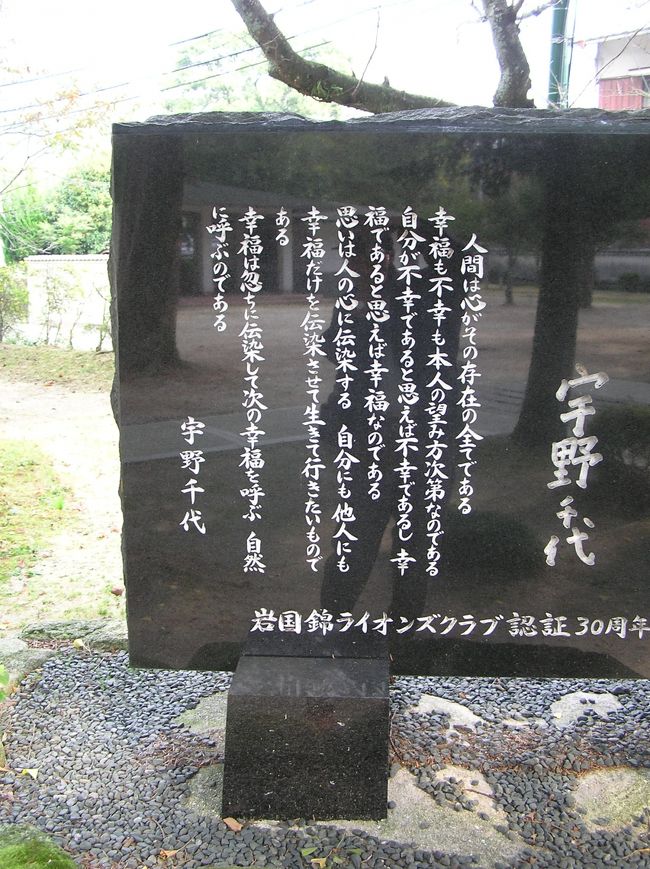 宇野千代
人間は心がその存在の全てである
幸福も不幸も本人の望み方次第なのである
自分が不幸であると思えば不幸であるし 幸
福であると思えば幸福なのである
思いは人の心に伝染する 自分にも他人にも
幸福だけを伝染させて生きて行きたいもので
ある
幸福は忽ちに伝染して次の幸福を呼ぶ 自然
に呼ぶのである
宇野千代
岩国錦ライオンズクラブ 認証30周年